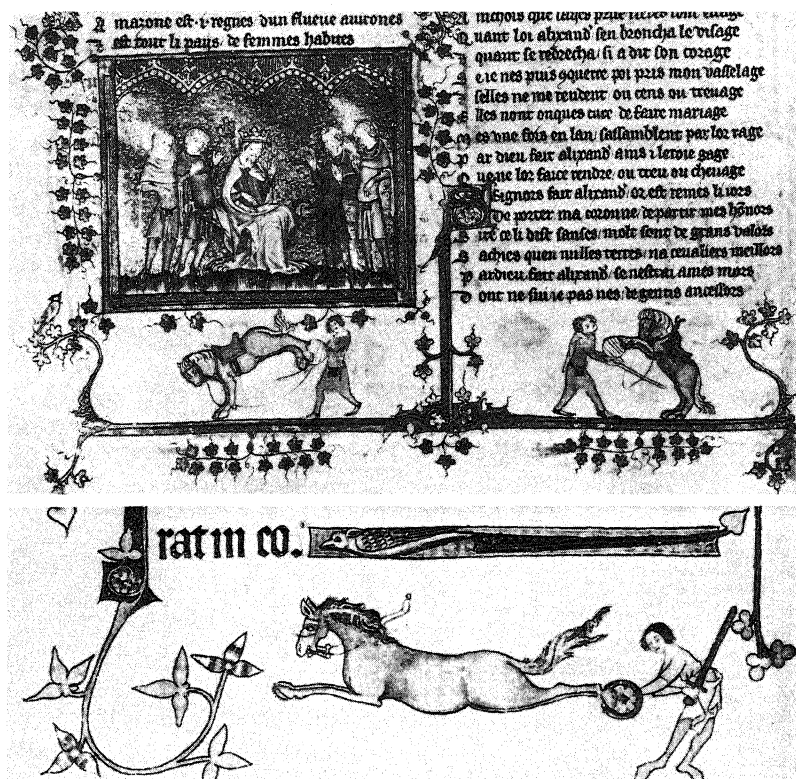 A marone est .i. regnes dun flueue auirones
E st tout li pays de femmes habites
A inchois que
Q uant loi alixand' sen broncha le visage
quant se redrecha si a dit son corage
e ie nes puis 9querre poi pris mon vasselage
selles ne me rendent ou cens ou treuage
lles nont onques cure de faire mariage
m es vne fois en lan sassamblent par lor rage
p ar dieu fait alixand' ains i gage
q ue ne lor face rendre ou treu ou cheuage
Signors fait alixand' or est remes li iors
De porter ma coronne departir mes honors
s ire ce li dist sanses molt sont de grans valors
s achies quen nulles terres na ceualiers meillors
p ardieu fait alixand' se ames mors
d ont ne sui ie pas nes de gentis ancessors
rat in eo.